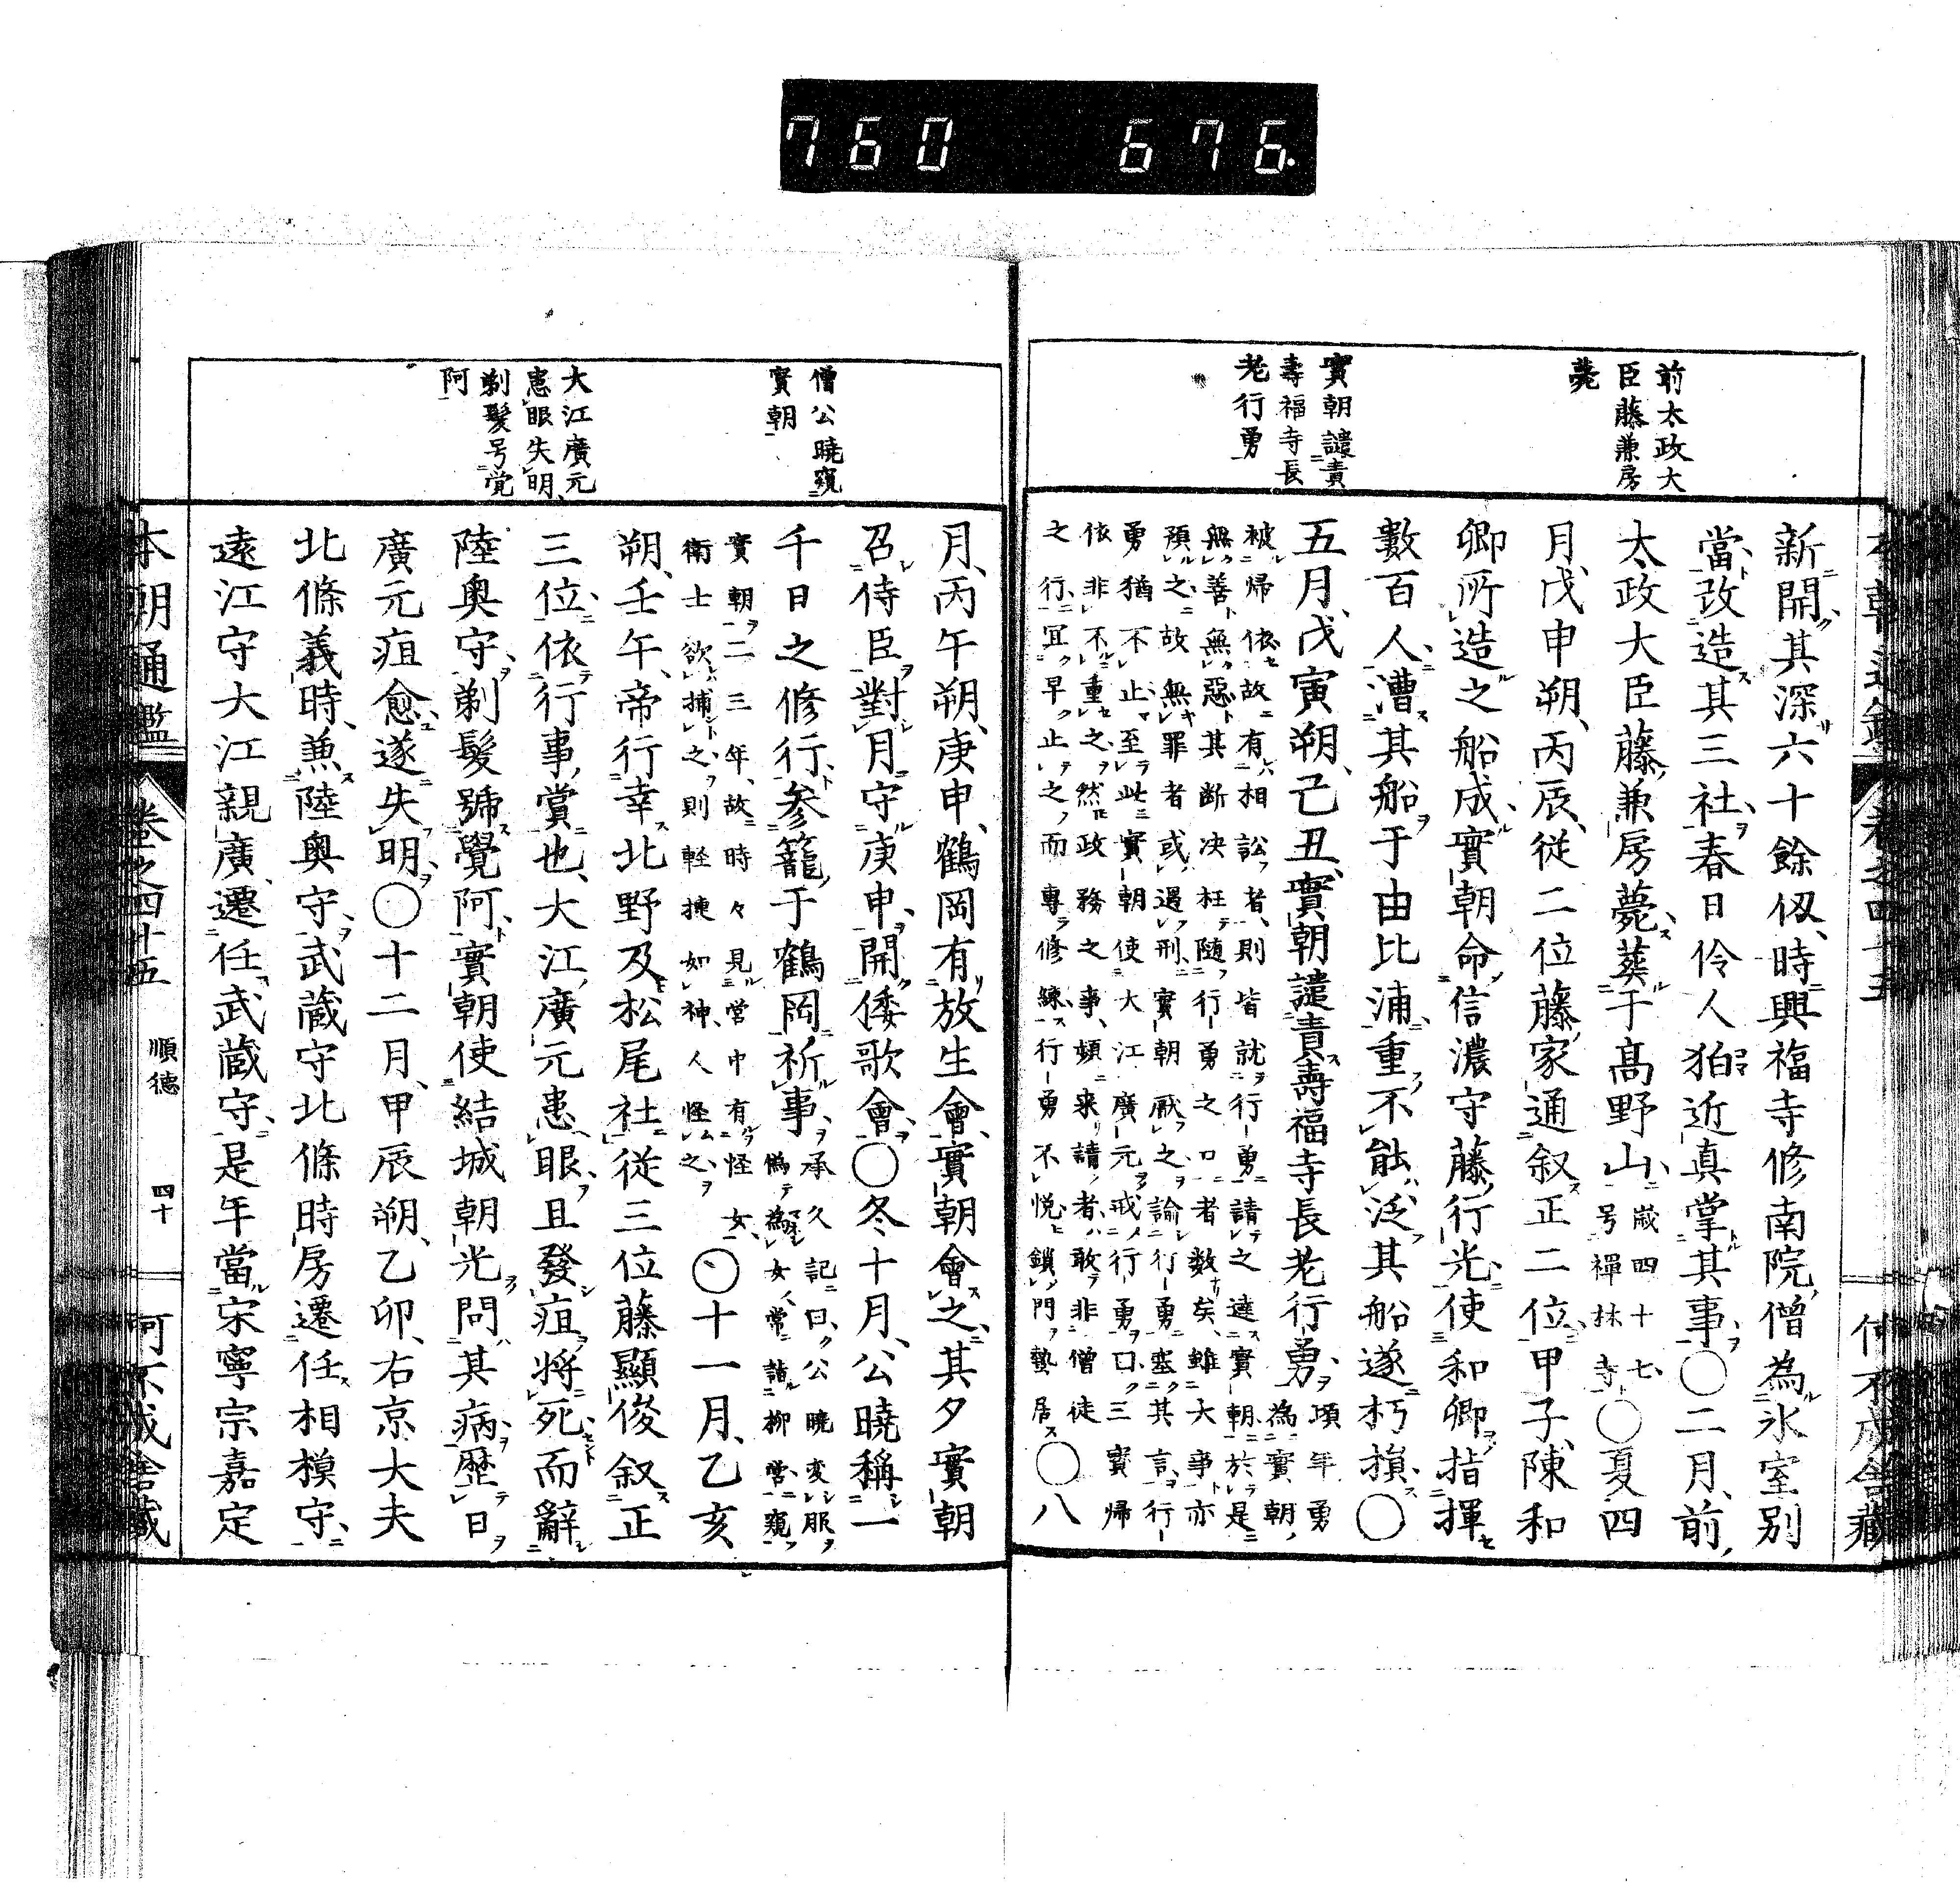 760 676
前太政大
臣藤兼房
薨
實朝譴責
壽福寺長
老行勇
新開其深六十餘仭時興福寺修南院僧為氷室別
當改造其三社春日伶人狛近真掌其事〇二月前
太政大臣藤兼房薨葬于髙野山歳四十七号禪林寺〇夏四
月戊申朔丙辰従二位藤家通叙正二位甲子陳和
卿所造之船成實朝命信濃守藤行光使和卿指揮
數百人漕其船于由比浦重不能泛其船遂朽損〇
五月戊寅朔己丑實朝譴責壽福寺長老行勇項年勇為實朝
被帰依故有相訟者則皆就行勇請之達實朝於是
無善無惡其断决枉随行勇之口者数矣雖大事亦
預之故無罪者或遇刑實朝厭之諭行勇塞其言行
勇猶不止至此實朝使大江廣元戒行勇曰三寳帰
依非不重之然政務之事頻来請者敢非僧徒
之行冝早止之而專修練行勇不悦鎖門蟄居〇八
僧公曉窺
實朝
大江廣元
患眼失明
剃髪号覚
阿
月丙午朔庚申鶴岡有放生會實朝會之其夕實朝
召侍臣對月守庚申開倭歌會〇冬十月公曉稱一
千日之修行參籠于鶴岡祈事承久記曰公曉変服偽為女人常詣柳営窺
實朝二三年故時々見営中有怪女
衛士欲捕之則軽捷如神人怪之〇十一月乙亥
朔壬午帝行幸北野及松尾社従三位藤顯俊叙正
三位依行事賞也大江廣元患眼且發疽将死而辭
陸奥守剃髮號覺阿實朝使結城朝光問其病歴日
廣元疽愈遂失明〇十二月甲辰朔乙卯右京大夫
北條義時兼陸奥守武蔵守北條時房遷任相模守
遠江守大江親廣遷任武蔵守是年當宋寧宗嘉定
本朝通鑑 卷之四十五 順徳 四十